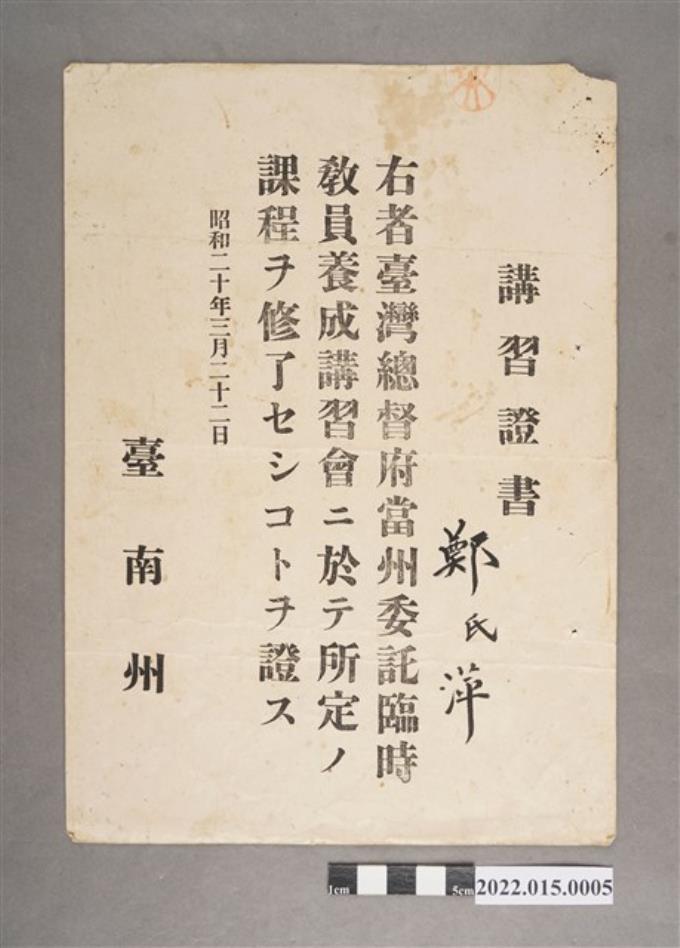 講習證書
鄭氏萍
右者臺灣總督府當州委託臨時
教員養成講習會ニ於テ所定ノ
課程ヲ修了セシコトヲ證ス
昭和二十年三月二十二日
臺南州
1cm
5cm
2022.015.0005